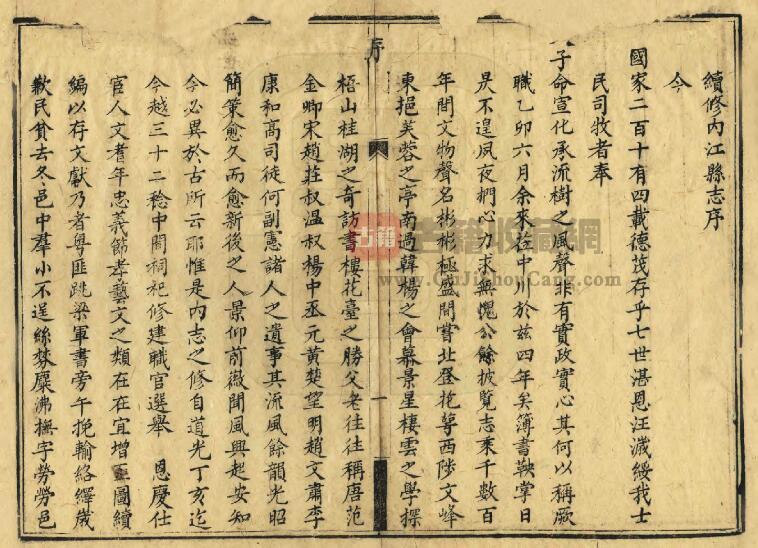 續修內江縣志序
今
國家二百十有四載德茂存乎七世湛恩汪濊綏我士
民司牧者奉
天子命宣化承流樹之風聲非有實政實心其何以稱厥
職乙卯六月余來蒞中川於茲四年矣簿書鞅掌日
昃不遑夙夜捫心力求無愧公餘披覽志乘千數百
年間文物聲名彬彬極盛間嘗北登抱萼西陟文峰
東挹芙蓉之亭南過韓楊之會慕景星棲雲之學探
序
一
梧山桂湖之奇訪書樓花臺之勝父老往往稱唐范
金卿宋趙莊叔溫叔楊中丞元黃楚望明趙文肅李
康和高司徒何副憲諸人之遺事其流風餘韻光昭
簡策愈久而愈新後之人景仰前徽聞風興起安知
今必異於古所云耶惟是內志之修自道光丁亥迄
今越三十二稔中間祠祀修建職官選舉 恩慶仕
官人文耆年忠義節孝藝文之類在在宜增亟圖續
編以存文獻乃者粵匪跳梁軍書旁午輓輸絡繹歲
歉民貧去冬邑中羣小不逞絲棼麋沸撫字勞勞邑
古籍
古籍收藏網
www.GuJiShouCang.com